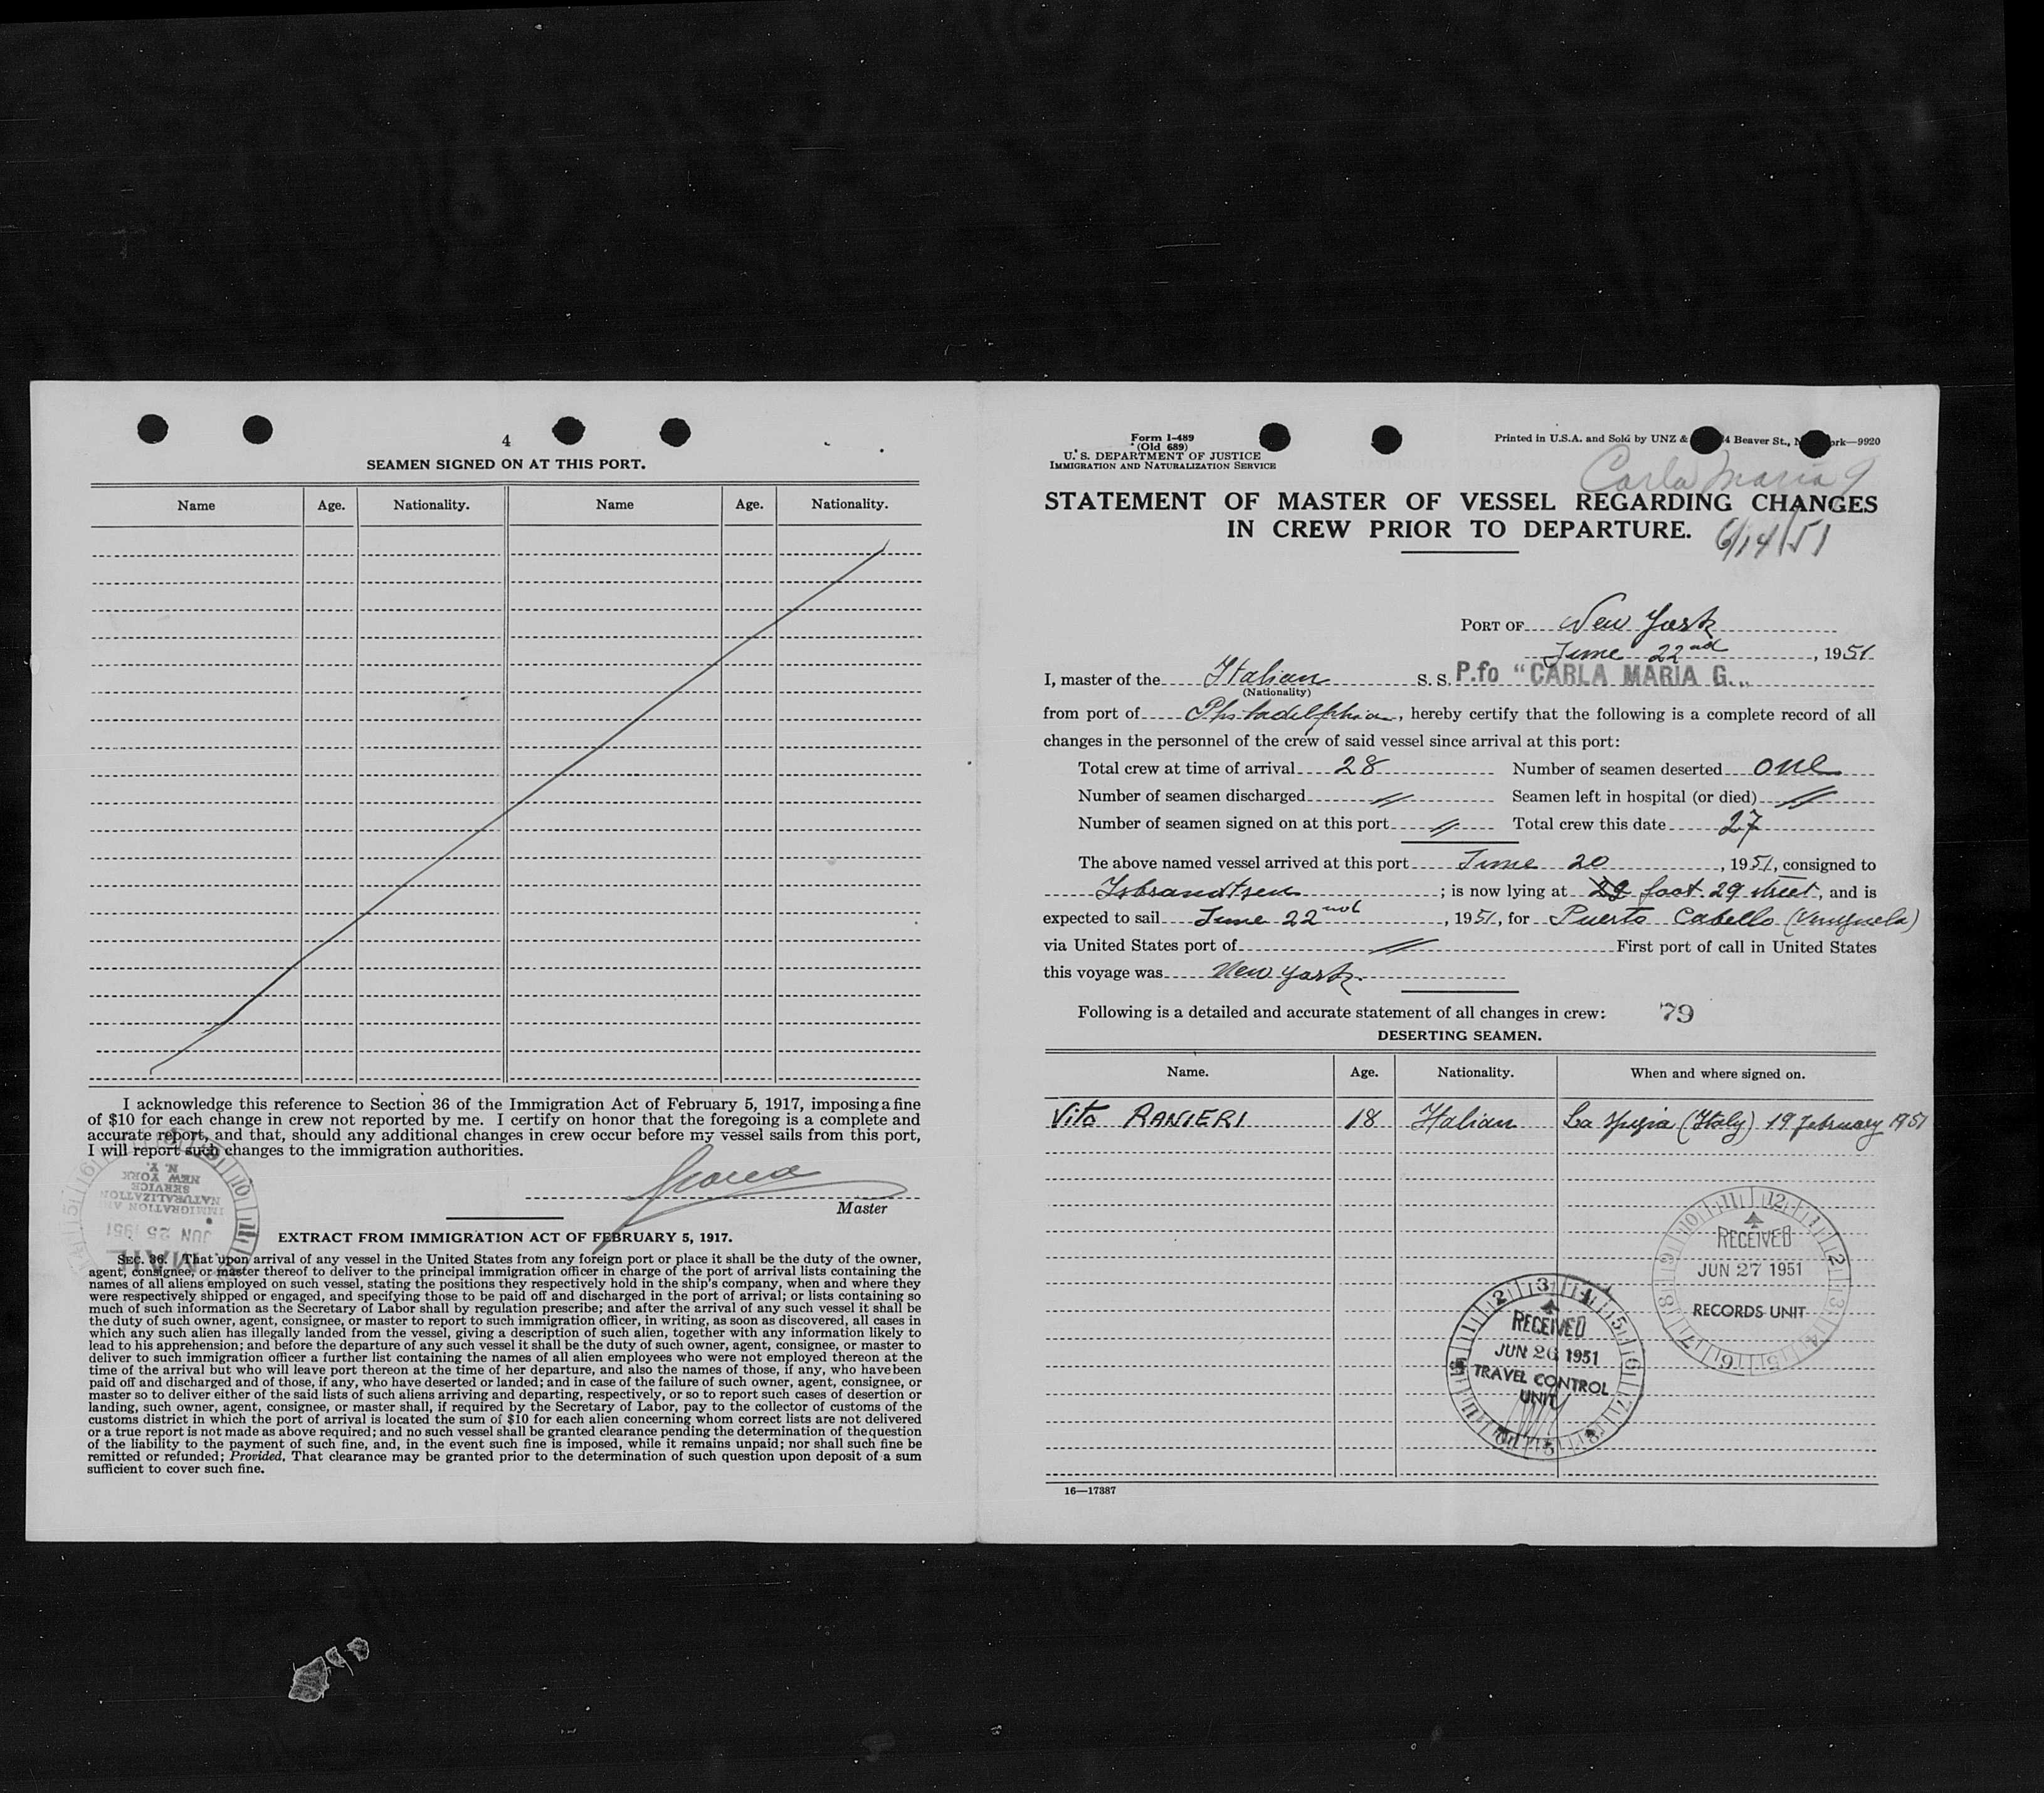 4
SEAMEN SIGNED ON AT THIS PORT.
Name Age. Nationality. Name Age. Nationality.
I acknowledge this reference to Section 36 of the Immigration Act of February 5, 1917, imposing a fine
of $10 for each change in crew not reported by me. I certify on honor that the foregoing is a complete and
accurate report, and that, should any additional changes in crew occur before my vessel sails from this port,
I will report such changes to the immigration authorities.
Master
IMMIGRATION AND
NATURALIZATION
SERVICE
NEW YORK
N. Y.
JUN 25 1951
MAIL
EXTRACT FROM IMMIGRATION ACT OF FEBRUARY 5, 1917.
SEC. 36. That upon arrival of any vessel in the United States from any foreign port or place it shall be the duty of the owner,
agent, consignee, or master thereof to deliver to the principal immigration officer in charge of the port of arrival lists containing the
names of all aliens employed on such vessel, stating the positions they respectively hold in the ship's company, when and where they
were respectively shipped or engaged, and specifying those to be paid off and discharged in the port of arrival; or lists containing so
much of such information as the Secretary of Labor shall by regulation prescribe; and after the arrival of any such vessel it shall be
the duty of such owner, agent, consignee, or master to report to such immigration officer, in writing, as soon as discovered, all cases in
which any such alien has illegally landed from the vessel, giving a description of such alien, together with any information likely to
lead to his apprehension; and before the departure of any such vessel it shall be the duty of such owner, agent, consignee, or master to
deliver to such immigration officer a further list containing the names of all alien employees who were not employed thereon at the
time of the arrival but who will leave port thereon at the time of her departure, and also the names of those, if any, who have been
paid off and discharged and of those, if any, who have deserted or landed; and in case of the failure of such owner, agent, consignee, or
master so to deliver either of the said lists of such aliens arriving and departing, respectively, or so to report such cases of desertion or
landing, such owner, agent, consignee, or master shall, if required by the Secretary of Labor, pay to the collector of customs of the
customs district in which the port of arrival is located the sum of $10 for each alien concerning whom correct lists are not delivered
or a true report is not made as above required; and no such vessel shall be granted clearance pending the determination of the question
of the liability to the payment of such fine, and, in the event such fine is imposed, while it remains unpaid; nor shall such fine be
remitted or refunded; Provided, That clearance may be granted prior to the determination of such question upon deposit of a sum
sufficient to cover such fine.
Form I-489
(Old 689)
U. S. DEPARTMENT OF JUSTICE
IMMIGRATION AND NATURALIZATION SERVICE
Printed in U.S.A. and Sold by UNZ & 4 Beaver St., N ork—9920
Carla Maria G
STATEMENT OF MASTER OF VESSEL REGARDING CHANGES
IN CREW PRIOR TO DEPARTURE.
6/14/51
PORT OF New York
June 22nd, 1951
I, master of the Italian S. S. P.fo "CARLA MARIA G.„
(Nationality)
from port of Philadelphia, hereby certify that the following is a complete record of all
changes in the personnel of the crew of said vessel since arrival at this port:
Total crew at time of arrival 28 Number of seamen deserted one
Number of seamen discharged // Seamen left in hospital (or died) //
Number of seamen signed on at this port // Total crew this date 27
The above named vessel arrived at this port June 20, 1951, consigned to
Isbrandtsen; is now lying at foot. 29 street, and is
expected to sail June 22nd, 1951, for Puerto Cabello (Venezuela)
via United States port of // First port of call in United States
this voyage was New York.
Following is a detailed and accurate statement of all changes in crew: 79
DESERTING SEAMEN.
Name. Age. Nationality. When and where signed on.
Vito RANIERI 18 Italian La Spezia (Italy) 19 February 1951
RECEIVED
JUN 27 1951
RECORDS UNIT
RECEIVED
JUN 26 1951
TRAVEL CONTROL
UNIT
16—17387